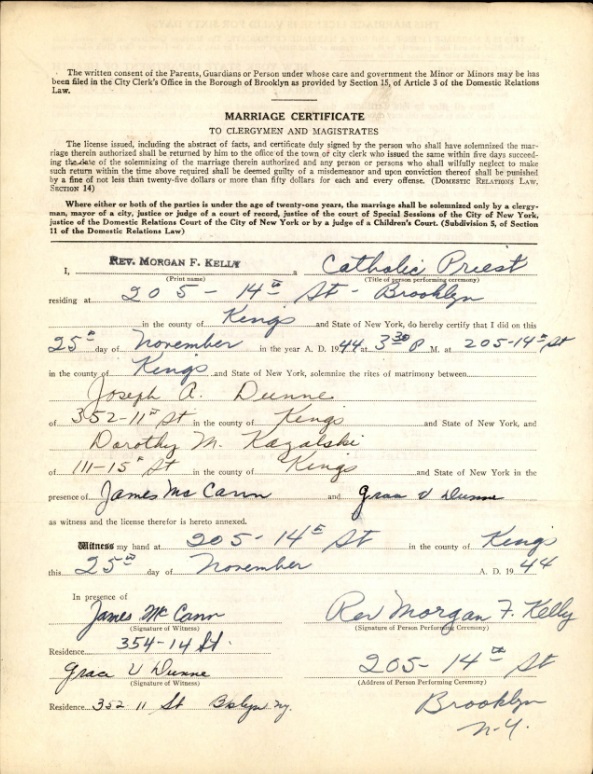 The written consent of the Parents, Guardians or Person under whose care and government the Minor or Minors may be has
been filed in the City Clerk's Office in the Borough of Brooklyn as provided by Section 15, of Article 3 of the Domestic Relations
Law.
MARRIAGE CERTIFICATE
TO CLERGYMEN AND MAGISTRATES
The license issued, including the abstract of facts, and certificate duly signed by the person who shall have solemnized the mar-
riage therein authorized shall be returned by him to the office of the town or city clerk who issued the same within five days succeed-
ing the date of the solemnizing of the marriage therein authorized and any person or persons who shall wilfully neglect to make
such return within the time above required shall be deemed guilty of a misdemeanor and upon conviction thereof shall be punished
by a fine of not less than twenty-five dollars or more than fifty dollars for each and every offense. (DOMESTIC RELATIONS LAW,
SECTION 14)
Where either or both of the parties is under the age of twenty-one years, the marriage shall be solemnized only by a clergy-
man, mayor of a city, justice or judge of a court of record, justice of the court of Special Sessions of the City of New York,
justice of the Domestic Relations Court of the City of New York or by a judge of a Children's Court. (Subdivision 5, of Section
11 of the Domestic Relations Law)
I, REV. MORGAN F. KELLY a Catholic Priest
(Print name) (Title of person performing ceremony)
residing at 205-14th St - Brooklyn
in the county of Kings and State of New York, do hereby certify that I did on this
25th day of November in the year A. D. 1944 at 3:30 P. M. at 205-14th St
in the county of Kings and State of New York, solemnize the rites of matrimony between
Joseph A. Dunne
of 352-11th St in the county of Kings and State of New York, and
Dorothy M. Kazalski
of 111-15th St in the county of Kings and State of New York in the
presence of James Mc Cann and Grace V Dunne
as witness and the license therefor is hereto annexed.
Witness my hand at 205-14th St in the county of Kings
this 25th day of November A. D. 1944
In presence of
James Mc Cann Rev Morgan F. Kelly
(Signature of Witness) (Signature of Person Performing Ceremony)
Residence 354-14 St.
Grace V Dunne 205-14th St
(Signature of Witness) (Address of Person Performing Ceremony)
Residence 352 11 St Bklyn Ny. Brooklyn
N-Y.